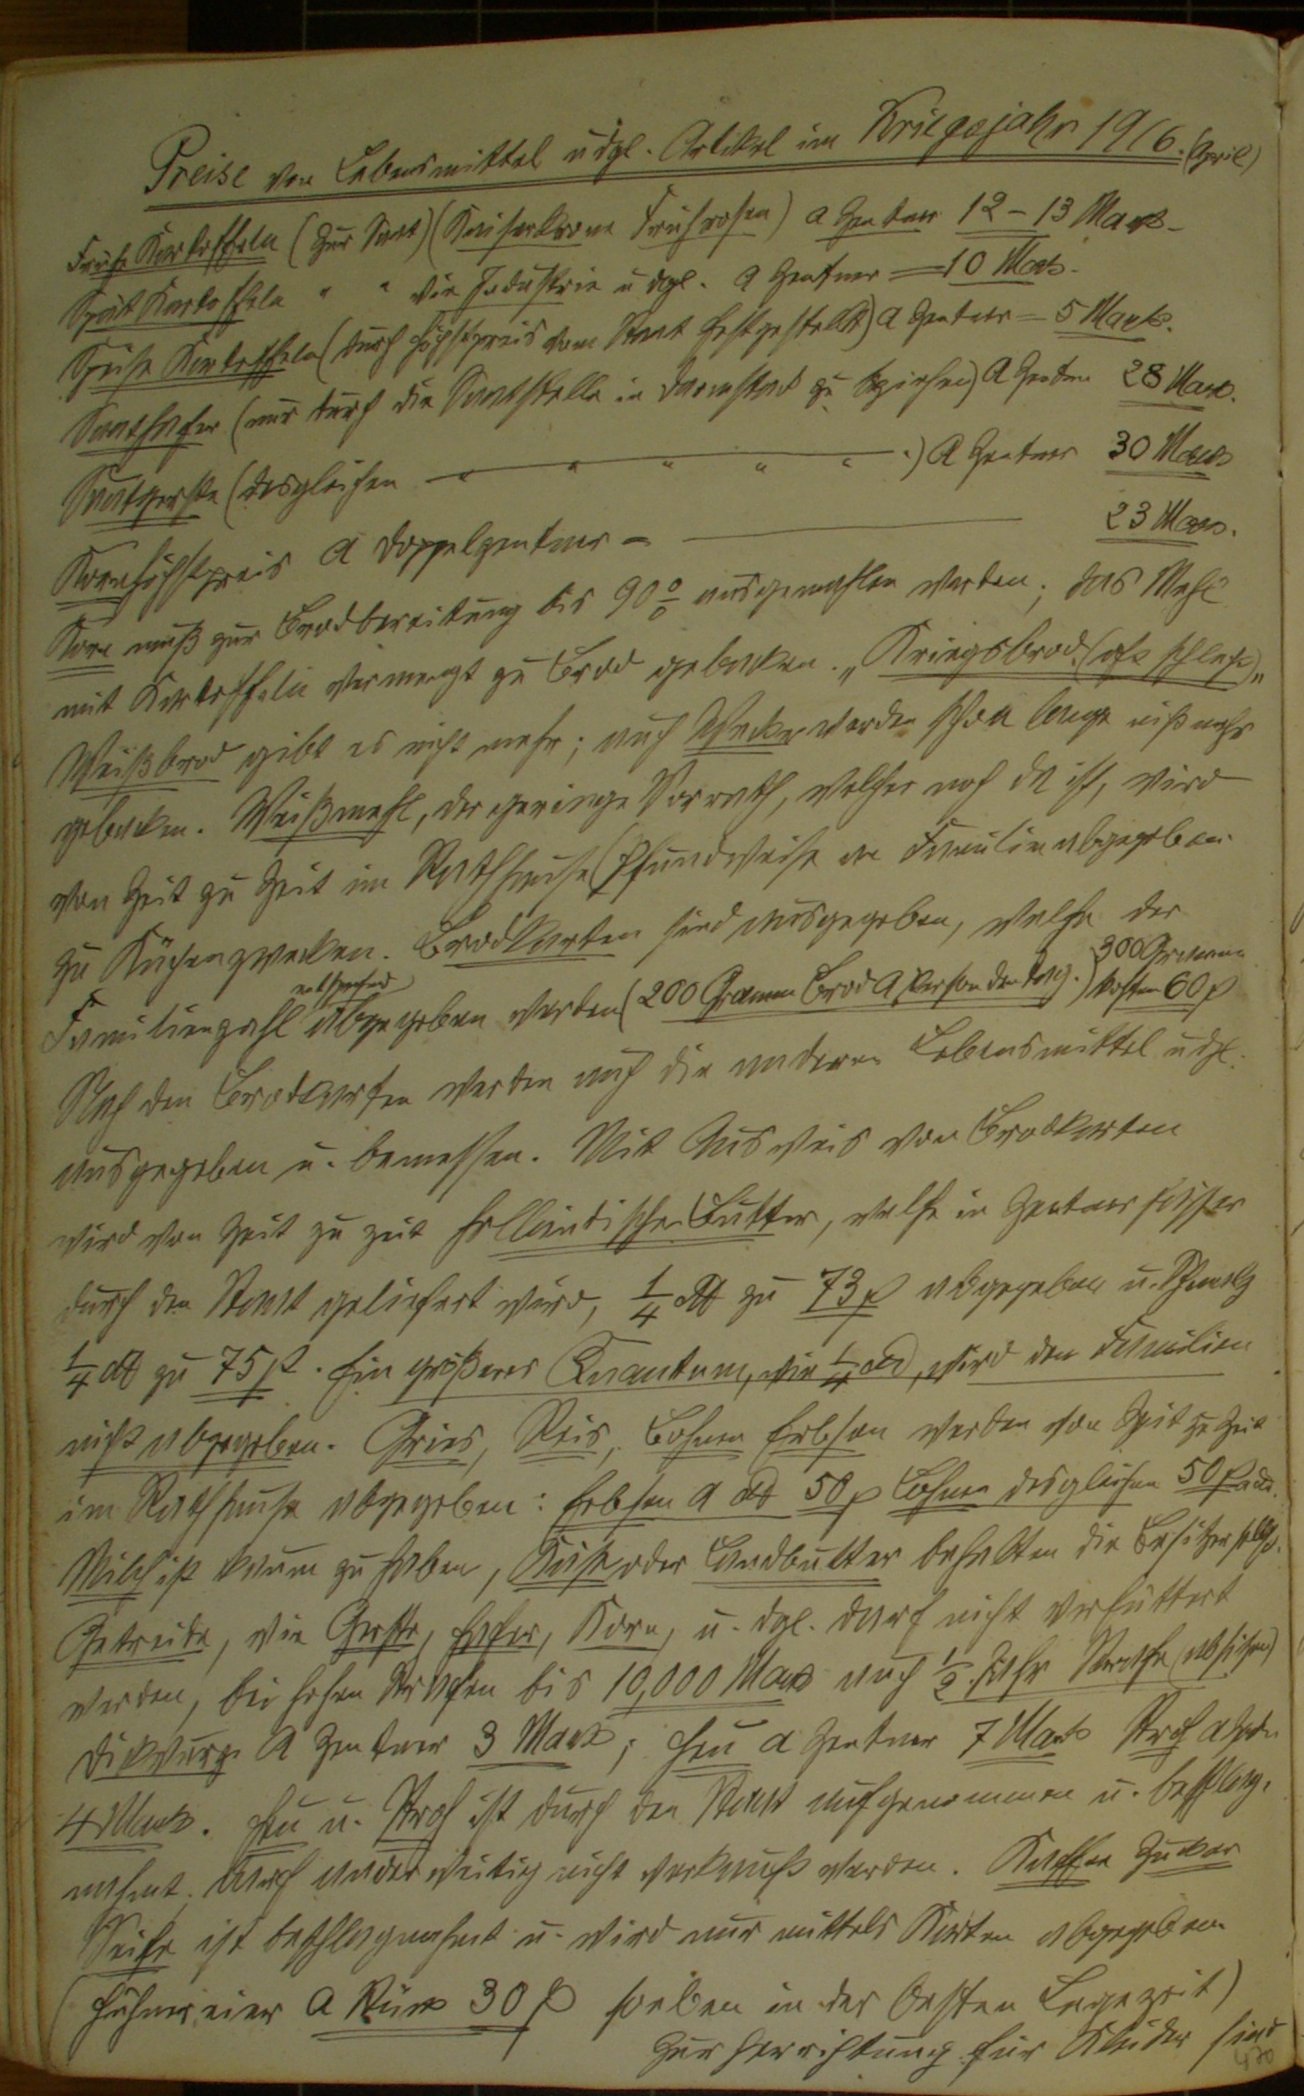 Preise von Lebensmittel u dgl. Artikel im Kriegsjahr 1916. (April)
Frühe Kartoffeln (zur Saat) (Kaiserkrone Frührosen) a Zentner 12 - 13 Mark.
Spät Kartoffeln " " wie Industrie u dgl. a Zentner = 10 Mark.
Speise Kartoffeln (durch Höchstpreis vom Staat festgestellt) a Zentner = 5 Mark.
Saathafer (nur durch die Saatstelle in Darmstadt zu beziehen) a Zentner 28 Mark.
Saatgerste (desgleichen " " " " ") a Zentner 30 Mark
Kornhöchstpreis a Doppelzentner = 23 Mark.
Korn muß zur Brodbereitung bis 90 % ausgemahlen werden; das Mehl
mit Kartoffeln vermengt zu Brod gebacken. „Kriegsbrod (oft schlecht)„
Weißbrod gibt es nicht mehr; auch Wecke werden schon lange nicht mehr
gebacken. Weißmehl, der geringe Vorrath, welcher noch da ist, wird
von Zeit zu Zeit im Rathhause (Pfundweise an Familien abgegeben
zu Küchenzwecken. Brodkarten sind ausgegeben, welche der
Familienzahl entsprechend abgegeben werden (200 Gramm Brod a Person den Tag.) 300 Gramm kosten 60 ₰
Nach den Brodkarten werden auch die anderen Lebensmittel u dgl.
ausgegeben u. bemessen. Mit Ausweis von Brodkarten
wird von Zeit zu Zeit holländische Butter, welche in Zentner Fässer
durch den Staat geliefert wird, 1/4 ℔ zu 73 ₰ abgegeben u. Schmalz
1/4 ℔ zu 75 ₰. Ein größeres Quantum, wie 1/4 ℔, wird den Familien
nicht abgegeben. Gries, Reis, Bohnen Erbsen werden von Zeit zu Zeit
im Rathhause abgegeben: Erbsen a ℔ 50 ₰ Bohnen desgleichen 50 ₰ a ℔.
Milch ist kaum zu haben, Käse oder Landbutter behalten die Besitzer selbst.
Getreide, wie Gerste, Hafer, Korn, u. dgl. darf nicht verfüttert
werden, bei hohen Strafen bis 10,000 Mark auch 1/2 Jahr Strafe (absitzen)
Dickwurz a Zentner 3 Mark; Heu a Zentner 7 Mark Stroh a Zentn
4 Mark. Heu u. Stroh ist durch den Staat aufgenommen u. beschlag-
nahmt, darf anderweitig nicht verkauft werden. Kaffee Zucker
Seife ist beschlagnahmt u. wird nur mittels Karten abgegeben.
(Hühnereier a Stück 30 ₰ soeben in der besten Legezeit)
Zur Herrichtung für Kleider sind
470